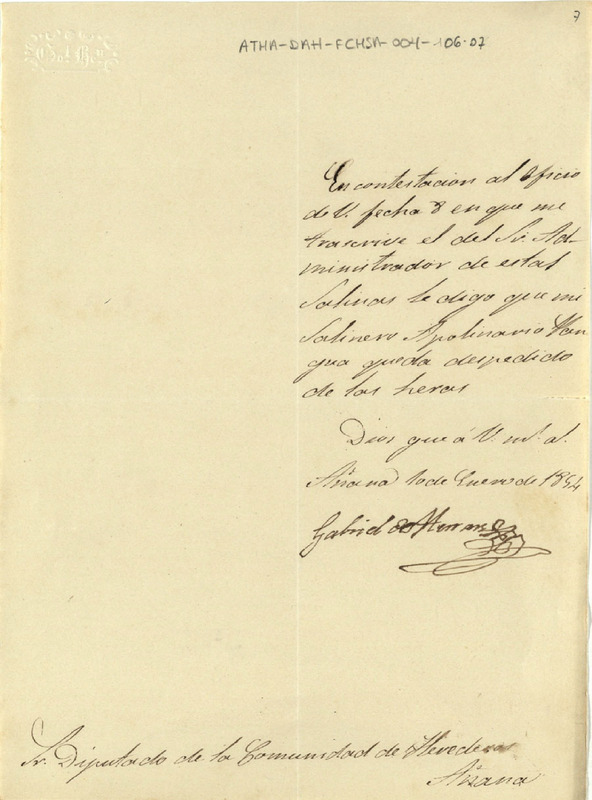 7
ATHA-DAH-FCHSA-004-106-07
En contestacion al oficio
de V. fecha 8 en que me
trascrive el del Sr. Ad-
ministrador de estas
Salinas le digo que mi
Salinero Apolinario
queda despedido
de las heras
Dios que á V. ms. as.
Añana 10 de Enero de 1854
Gabriel de Herran
Sr. Diputado de la Comunidad de Herederos
Añana